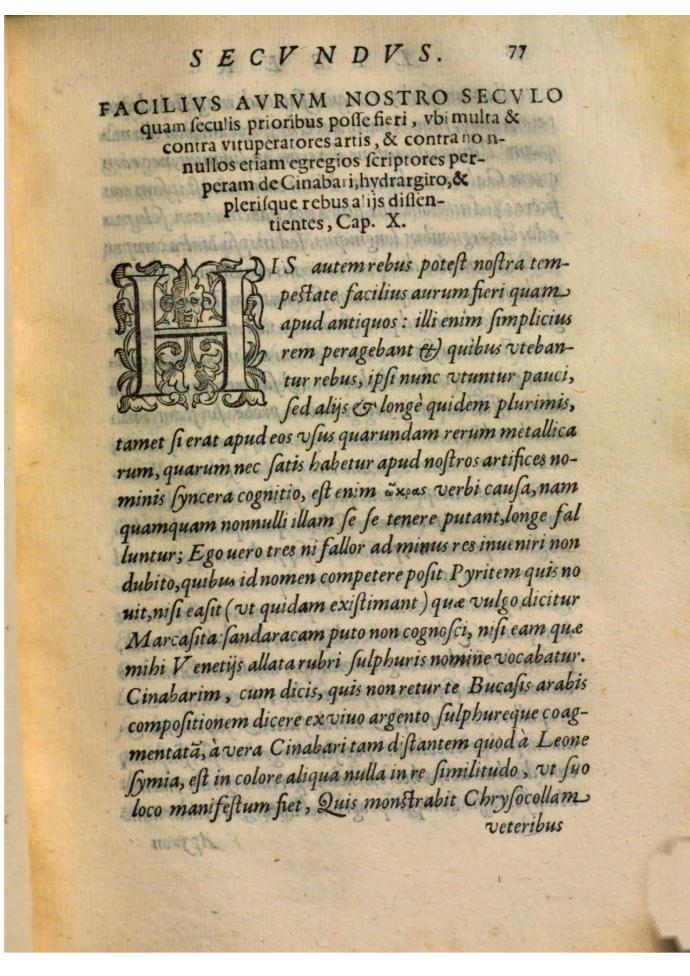 SECVNDVS. 77
FACILIVS AVRVM NOSTRO SECVLO
quam seculis prioribus posse fieri, vbi multa &
contra vituperatores artis, & contra no n-
nullos etiam egregios scriptores per-
peram de Cinabari, hydrargiro, &
plerisque rebus alijs dissen-
tientes, Cap. X.
HIS autem rebus potest nostra tem-
pestate facilius aurum fieri quam
apud antiquos: illi enim simplicius
rem peragebant & quibus vteban-
tur rebus, ipsi nunc vtuntur pauci,
sed alijs & longè quidem plurimis,
tamet si erat apud eos vsus quarundam rerum metallica
rum, quarum nec satis habetur apud nostros artifices no-
minis syncera cognitio, est enim ὤκρας verbi causa, nam
quamquam nonnulli illam se se tenere putant, longe fal
luntur; Ego uero tres ni fallor ad minus res inueniri non
dubito, quibus id nomen competere posit. Pyritem quis no
uit, nisi ea sit (vt quidam existimant) quæ vulgo dicitur
Marcasita: sandaracam puto non cognosci, nisi eam quæ
mihi Venetijs allata rubri sulphuris nomine vocabatur.
Cinabarim, cum dicis, quis non retur te Bucasis arabis
compositionem dicere ex viuo argento sulphureque coag-
mentatã, à vera Cinabari tam distantem quod à Leone
symia, est in colore aliqua nulla in re similitudo, vt suo
loco manifestum fiet, Quis monstrabit Chrysocollam
veteribus